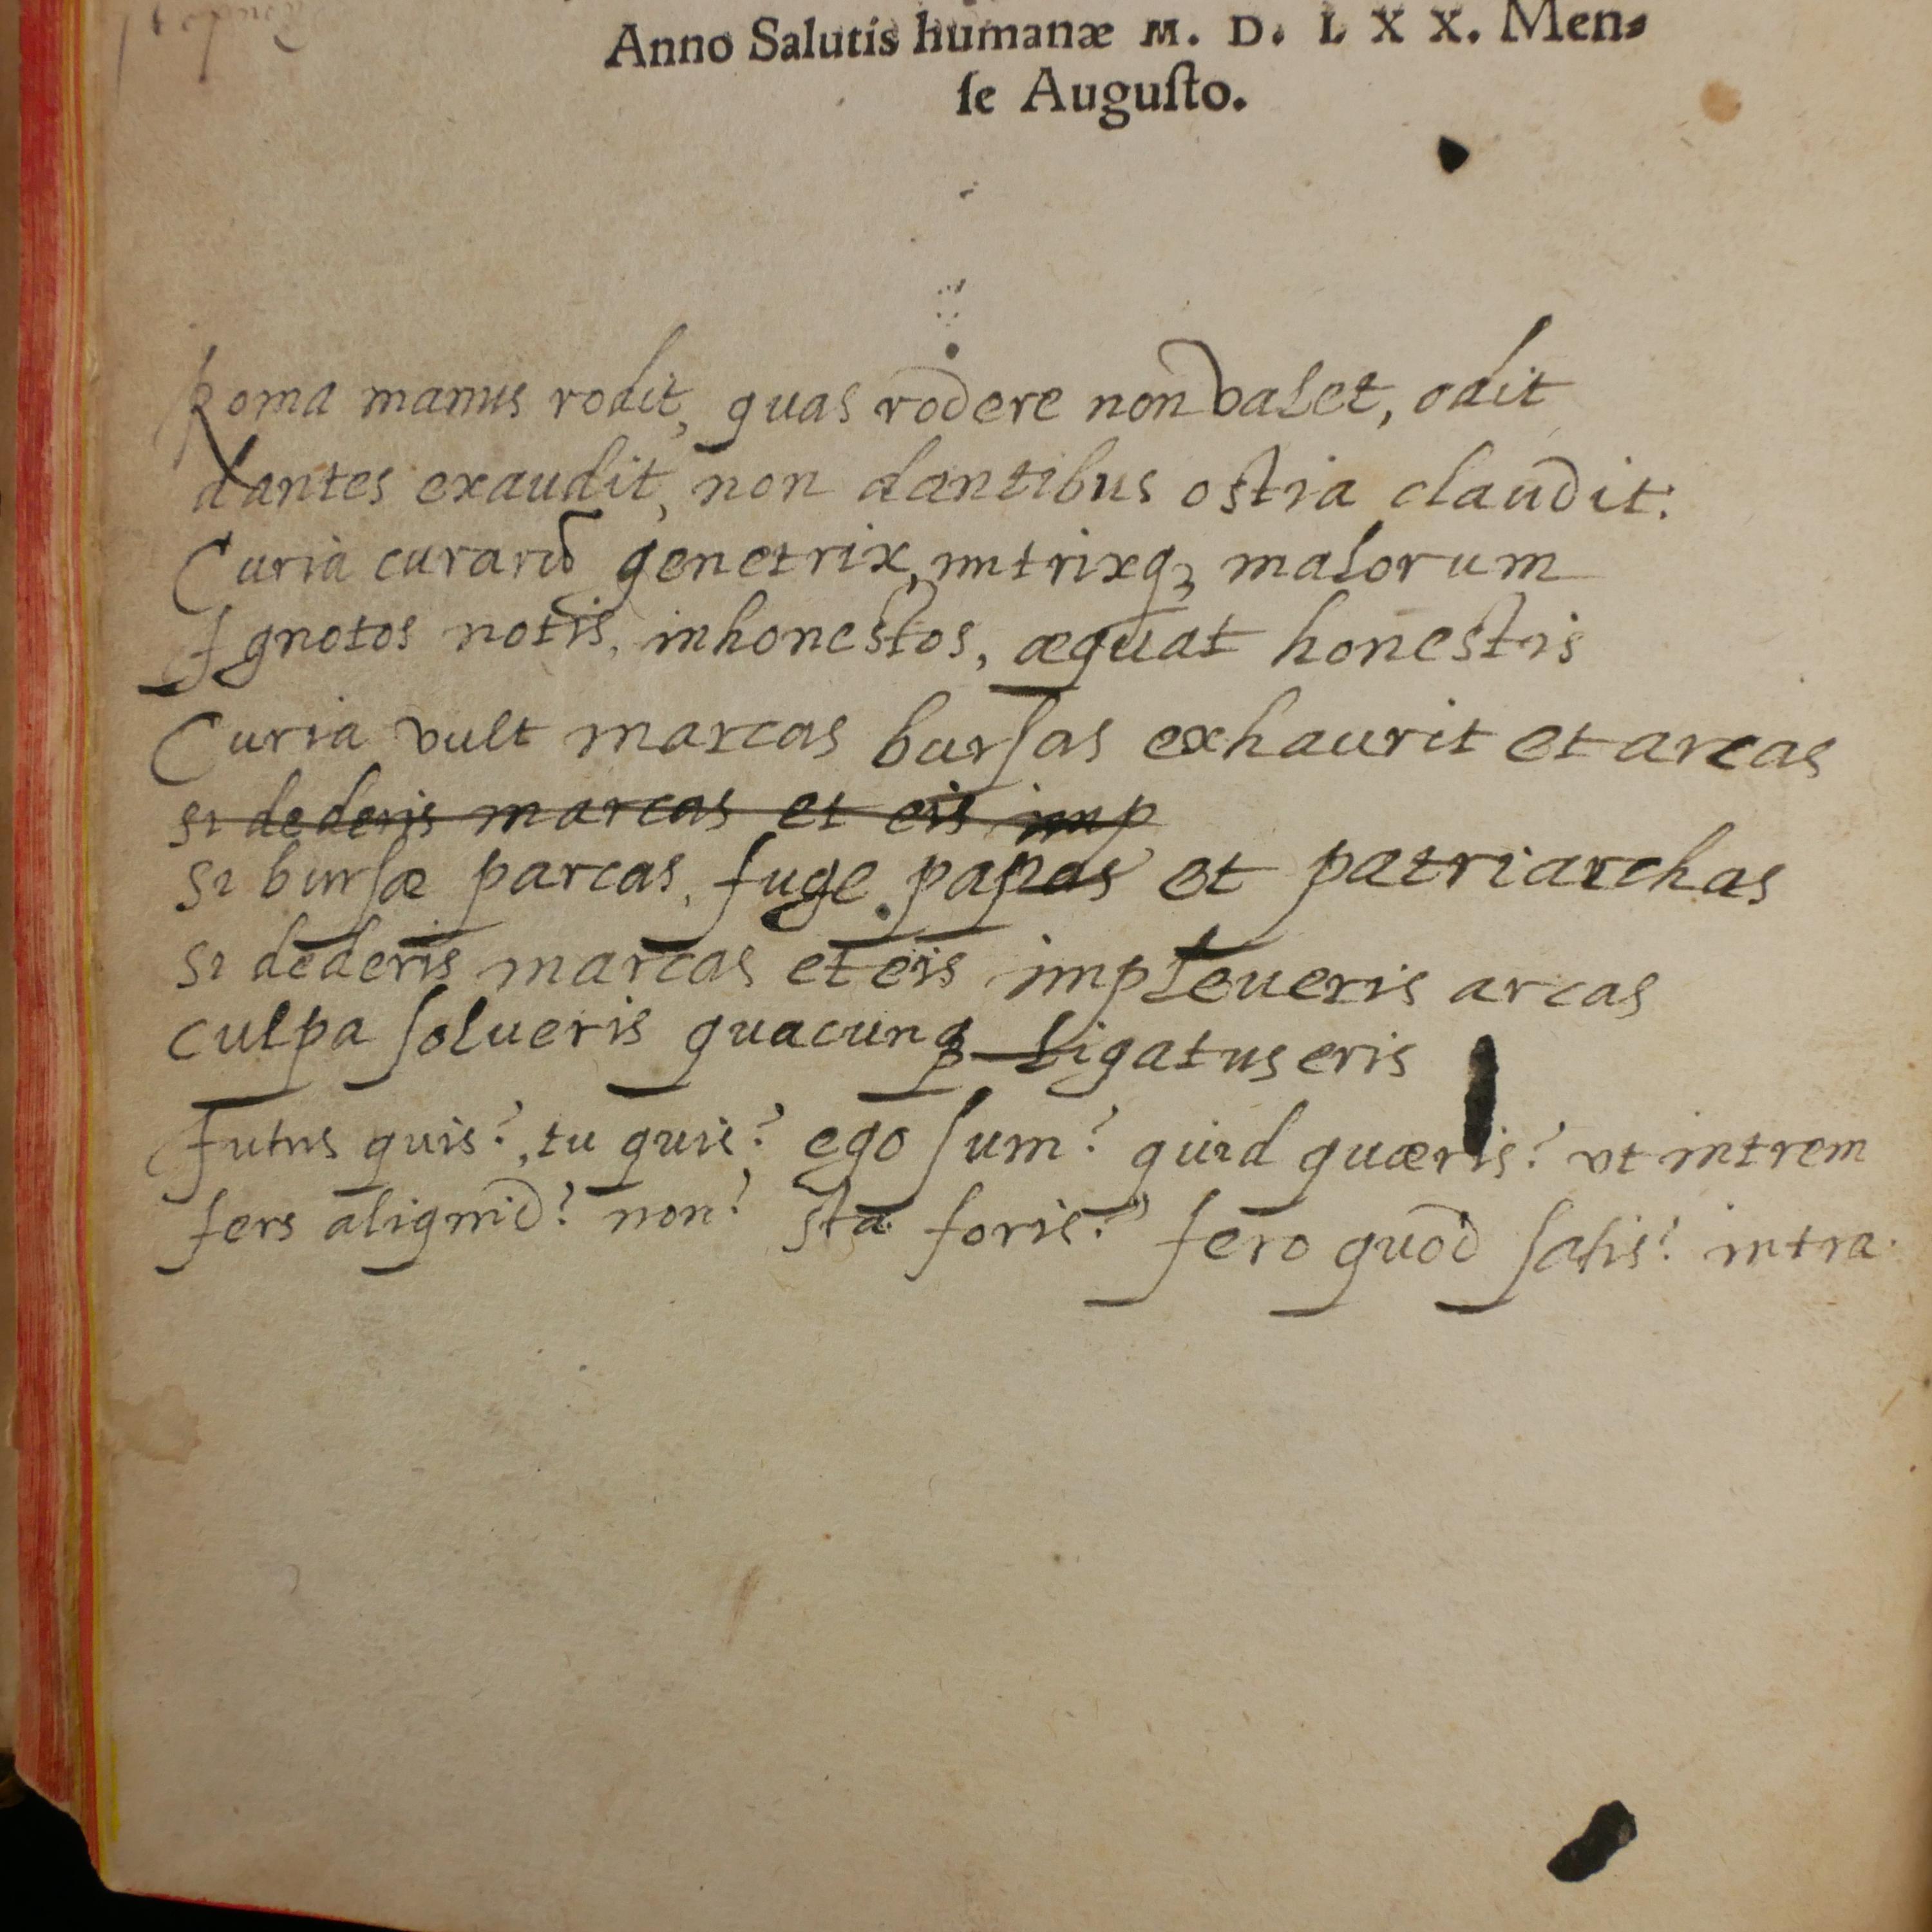 Anno Salutis humanæ M. D. L X X. Men-
ſe Auguſto.
Roma manus rodit, quas rodere non valet, odit
dantes exaudit, non dantibus ostia claudit:
Curia curarū genetrix, nutrixq3 malorum
Ignotos notis, inhonestos, æquat honestis
Curia vult marcas burſas exhaurit et arcas
si dederis marcas et eis imp
si burſæ parcas, fuge papas et patriarchas
si dederis marcas et eis impleueris arcas
culpa ſolueris quacunq ligatus eris
Intus quis?, tu quis? ego ſum? quid quæris? vt intrem
fers aliquid? non? sta foris? fero quod ſatis? intra.